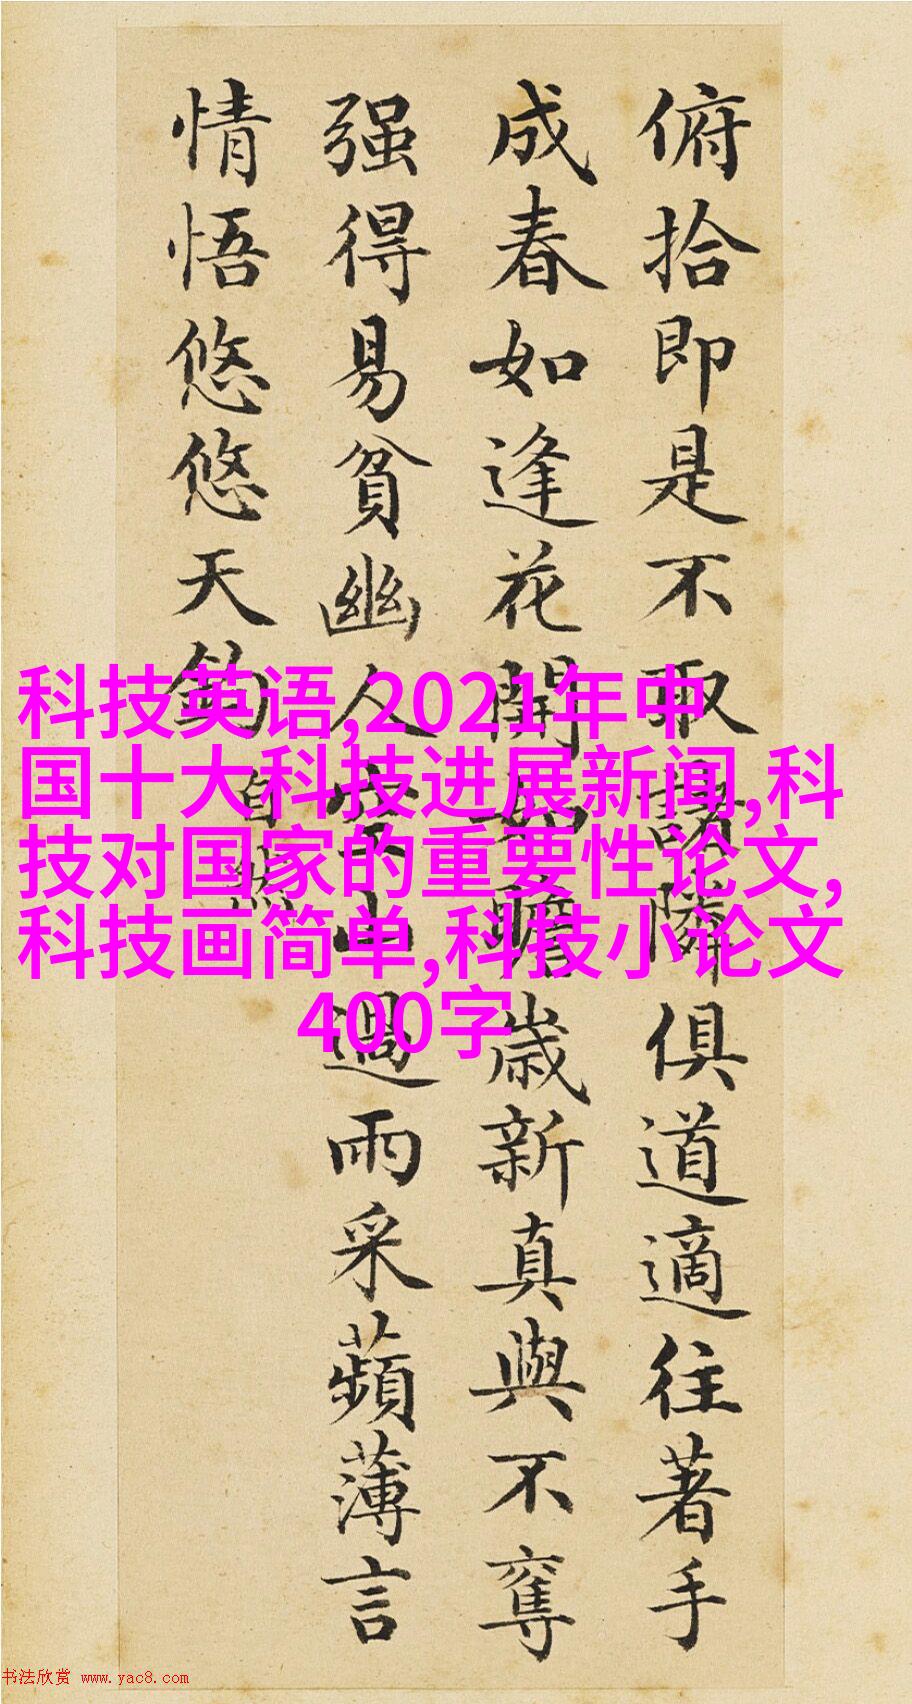 俯拾即是不取諸隣俱道適往著手
成春如逢花開如瞻歲新真與不奪
强得易貧幽人空山過雨采蘋薄言
情悟悠悠天鈞
自然
科技英语,2021年中
国十大科技进展新闻,科
技对国家的重要性论文,
科技画简单,科技小论文
400字
书法欣赏 www.yac8.com